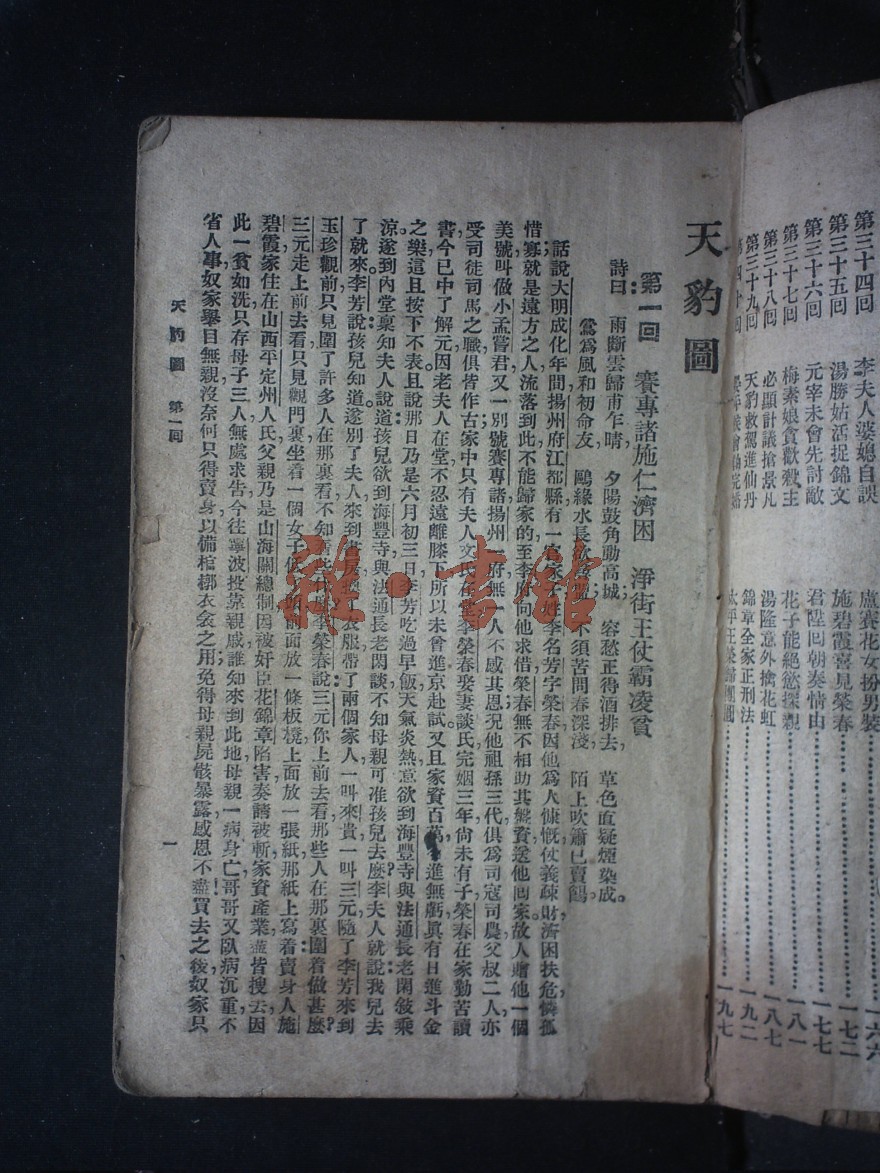 第三十四回 李夫人婆媳自誤 盧賽花女扮男裝 一六六
第三十五回 湯勝姑活捉錦文 施碧霞喜見榮春 一七二
第三十六回 元宰未會先討敵 君陞回朝奏情由 一七七
第三十七回 梅素娘貪歡殺主 花子能絕慾探親 一八一
第三十八回 必顯計議搶景凡 湯隆意外擒花虹 一八七
第三十九回 天豹救駕進仙丹 錦章全家正刑法 一九二
第四十回 太平王榮歸團圓 一九七
天豹圖
第一回 賽專諸施仁濟困 淨街王仗霸凌貧
詩曰 雨斷雲歸甫乍晴 夕陽鼓角動高城 容愁正得酒排去 草色直疑煙染成。
鶯為風和初命友 鷗緣水長欲尋盟 不須苦問春深淺 陌上吹簫已賣餳
話說大明成化年間揚州府江都縣有一官家子姓李名芳字榮春因他為人慷慨仗義疎財濟困扶危憐孤
惜寡就是遠方之人流落到此不能歸家的至李府向他求借榮春無不相助其盤資送他回家。故人贈他一個
美號叫做小孟嘗君又一別號賽專諸揚州一府無一人不感其恩況他祖孫三代俱為司寇司農父叔二人亦
受司徒司馬之職俱皆作古家中只有夫人文氏在堂李榮春娶妻談氏完姻三年尚未有子榮春在家勤苦讀
書今已中了解元因老夫人在堂不忍遠離膝下所以未曾進京赴試又且家資百萬進無虧真有日進斗金
之樂這且按下不表且說那日乃是六月初三日李芳吃過早飯天氣炎熱意欲到海豐寺與法通長老閑敍乘
涼遂到內堂稟知夫人說道孩兒欲到海豐寺與法通長老閑談不知母親可准孩兒去麼李夫人就說我兒去
了就來李芳說孩兒知道遂別了夫人來到書房換了衣服帶了兩個家人一叫來貴一叫三元隨了李芳來到
玉珍觀前只見圍了許多人在那裏看不知看些什麼李榮春說三元你上前去看那些人在那裏圍着做甚麼
三元走上前去看只見觀門裏坐着一個女子低頭前面放一條板櫈上面放一張紙那紙上寫着賣身人施
碧霞家住在山西平定州人氏父親乃是山海關總制因被奸臣花錦章陷害奏請被斬家資產業盡皆搜去因
此一貧如洗只存母子三人無處求告今往寧波投靠親戚誰知來到此地母親一病身亡哥哥又臥病沉重不
省人事奴家舉目無親沒奈何只得賣身以備棺槨衣衾之用免得母親屍骸暴露感恩不盡買去之後奴家只
天豹圖 第一回 一
雅·書館